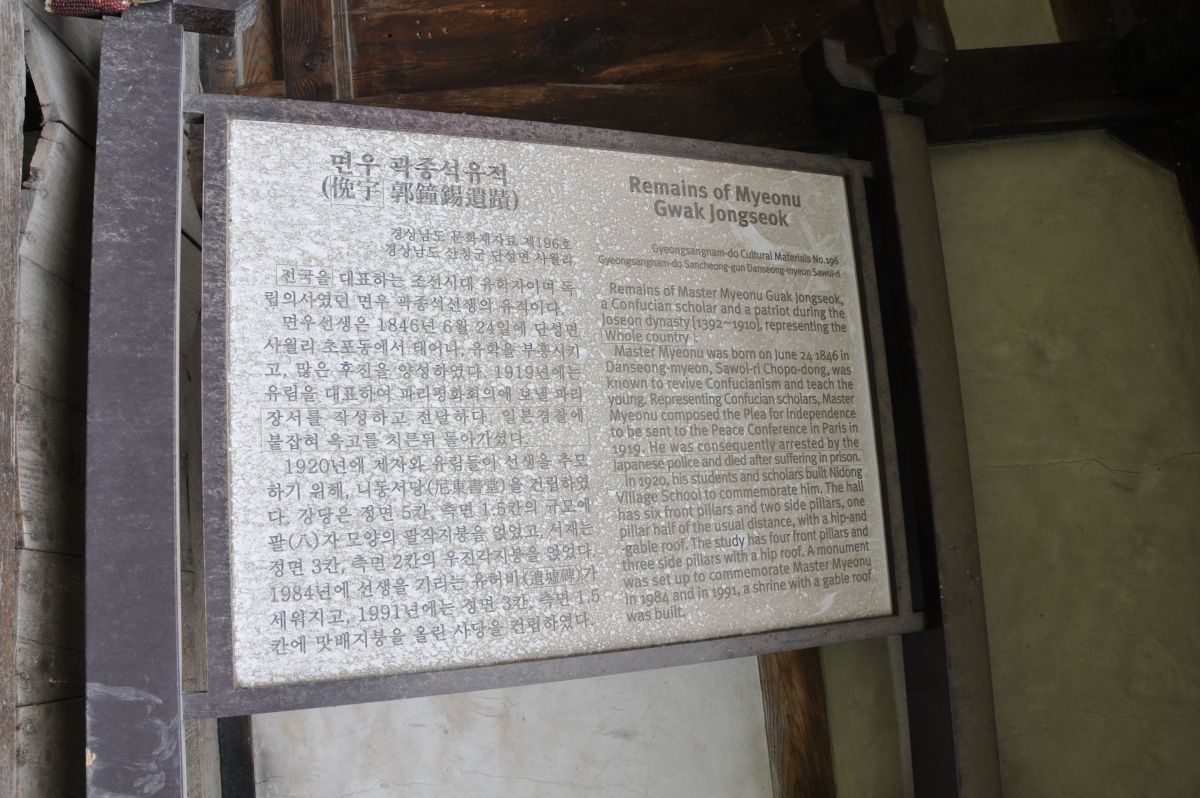 면우 곽종석유적
(俛宇 郭鐘錫遺蹟)
경상남도 문화재자료 제196호
경상남도 산청군 단성면 사월리
전국을 대표하는 조선시대 유학자이며 독
립의사였던 면우 곽종석선생의 유적이다.
면우선생은 1846년 6월 24일에 단성면
사월리 초포동에서 태어나, 유학을 부흥시키
고, 많은 후진을 양성하였다. 1919년에는
유림을 대표하여 파리평화회의에 보낼 파리
장서를 작성하고 전달하다, 일본경찰에
붙잡혀 옥고를 치른뒤 돌아가셨다.
1920년에 제자와 유림들이 선생을 추모
하기 위해, 니동서당(尼東書堂)을 건립하였
다. 강당은 정면 5칸, 측면 1.5칸의 규모에
팔(八)자 모양의 팔작지붕을 얹었고, 서재는
정면 3칸, 측면 2칸의 우진각지붕을 얹었다.
1984년에 선생을 기리는 유허비(遺墟碑)가
세워지고, 1991년에는 정면 3칸, 측면 1.5
칸에 맛배지붕을 올린 사당을 건립하였다.
Remains of Myeonu
Gwak Jongseok
Gyeongsangnam-do Cultural Materials No.196
Gyeongsangnam-do Sancheong-gun Danseong-myeon Sawol-ri
Remains of Master Myeonu Guak Jongseok,
a Confucian scholar and a patriot during the
Joseon dynasty (1392~1910), representing the
Whole country .
Master Myeonu was born on June 24 1846 in
Danseong-myeon, Sawol-ri Chopo-dong, was
known to revive Confucianism and teach the
young. Representing Confucian scholars, Master
Myeonu composed the Plea for Independence
to be sent to the Peace Conference in Paris in
1919. He was consequently arrested by the
Japanese police and died after suffering in prison.
In 1920, his students and scholars built Nidong
Village School to commemorate him. The hall
has six front pillars and two side pillars, one
pillar half of the usual distance, with a hip-and
-gable roof. The study has four front pillars and
three side pillars with a hip roof. A monument
was set up to commemorate Master Myeonu
in 1984 and in 1991, a shrine with a gable roof
was built.